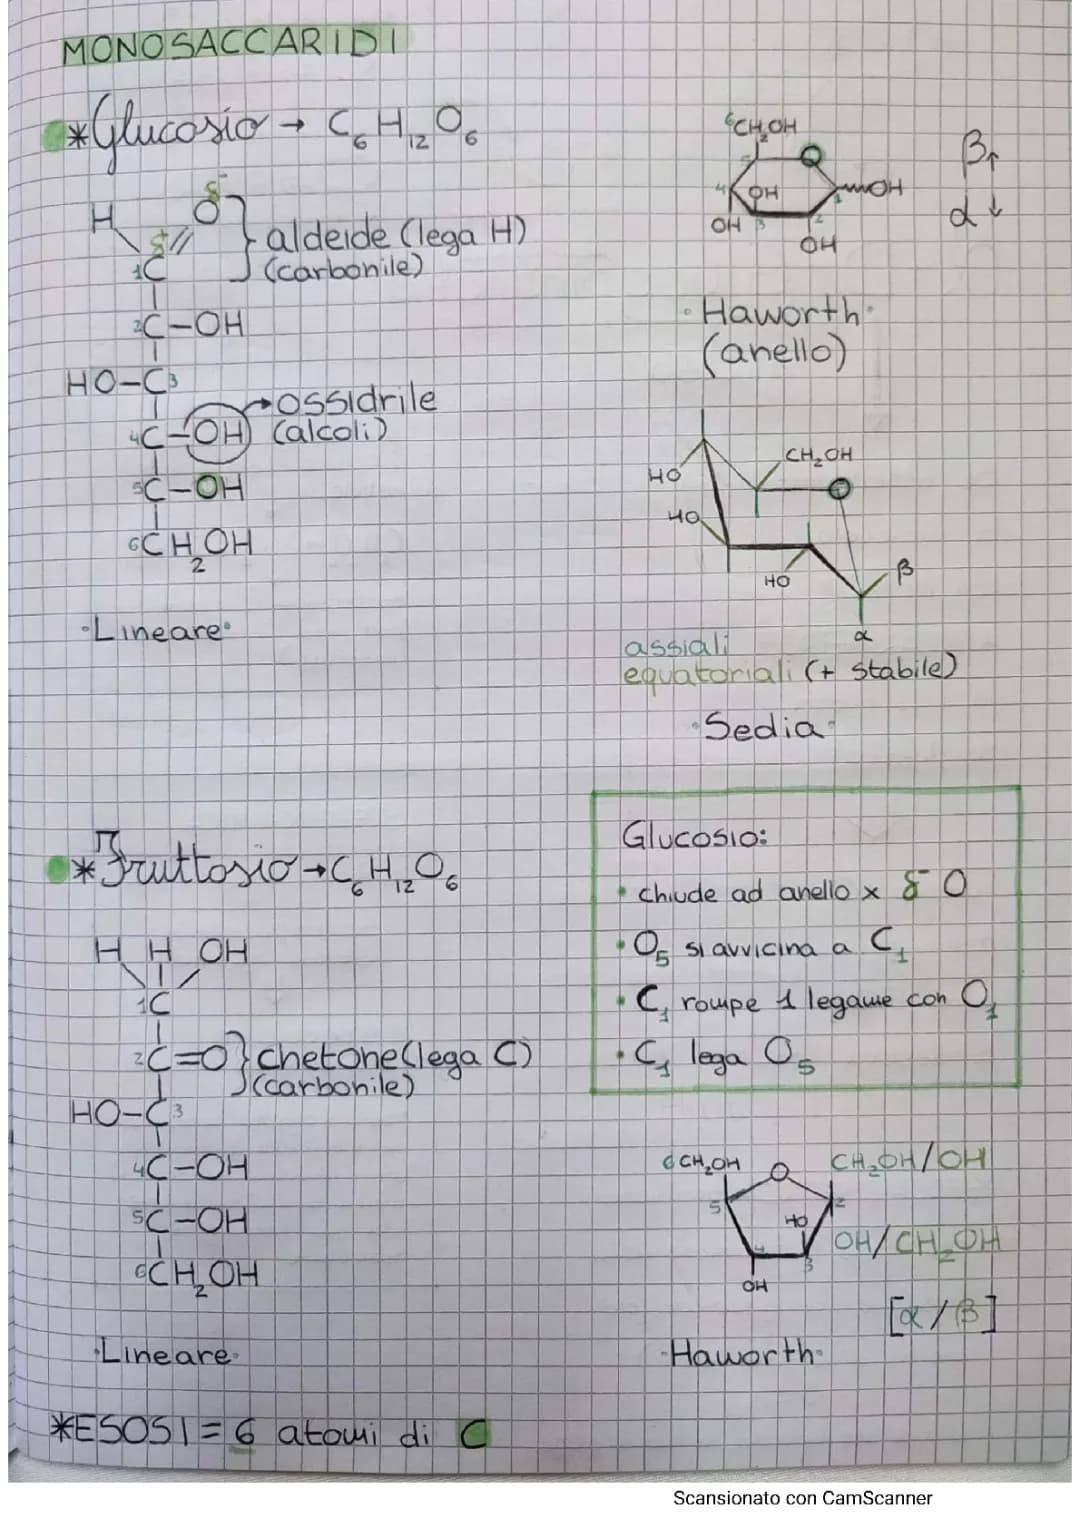 MONOSACCARIDI
*Glucosio → C6H12O6
H
δ-
O
δ
1C
} aldeide (lega H)
(carbonile)
2C-OH
HO-C3
4C-OH → ossidrile
(alcoli)
5C-OH
6CH2OH
·Lineare·
6CH2OH
5
O
4
OH
OH
3
2
OH
1
OH
β↑
α↓
·Haworth·
(anello)
HO
CH2OH
O
HO
HO
β
α
assiali
equatoriali (+ stabile)
·Sedia·
*Fruttosio → C6H12O6
H H OH
1C
2C=O } chetone (lega C)
(carbonile)
HO-C3
4C-OH
5C-OH
6CH2OH
·Lineare·
Glucosio:
• chiude ad anello x δ- O
• O5 si avvicina a C1
• C1 rompe 1 legame con O1
• C1 lega O5
6CH2OH
O
CH2OH/OH
5
2
HO
OH/CH2OH
4
3
OH
[α/β]
·Haworth·
*ESOSI = 6 atomi di C
Scansionato con CamScanner